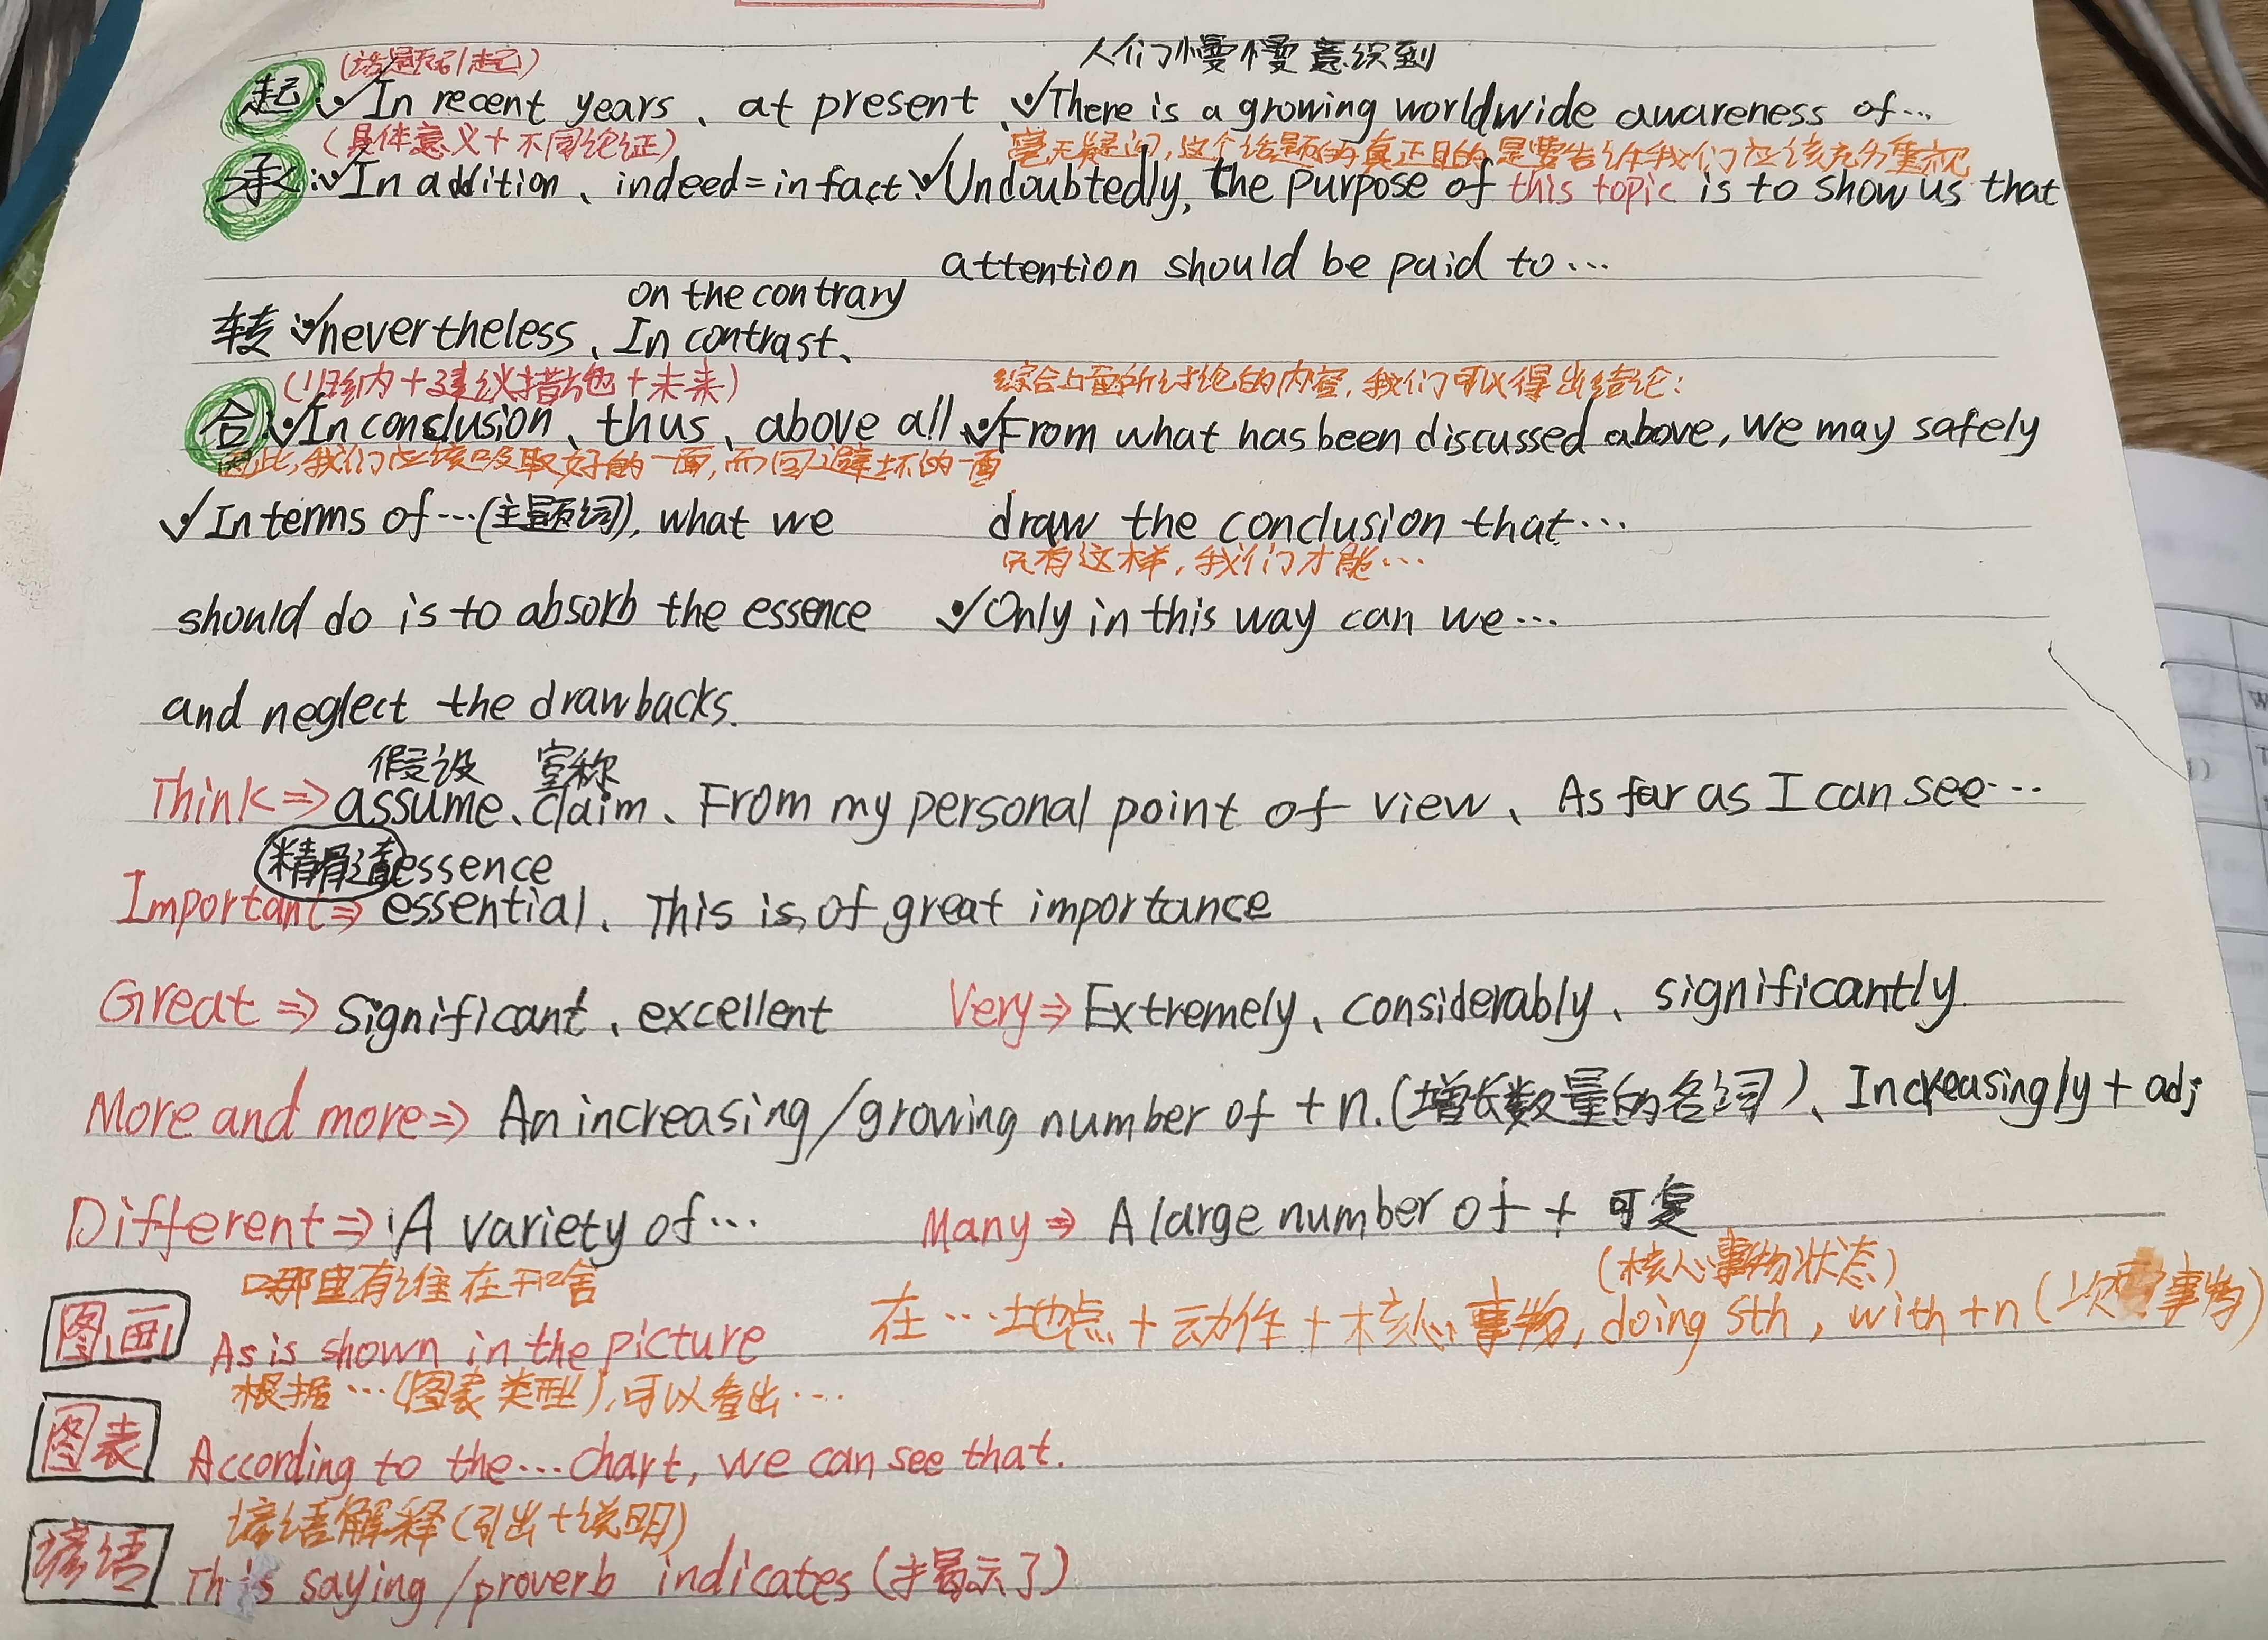 人们慢慢意识到
(话题引起)
起: ✓In recent years、at present、✓There is a growing worldwide awareness of…
(具体意义+不同论证) 毫无疑问,这个话题的真正目的是要告诉我们应该充分重视
承: ✓In addition、indeed=in fact、✓Undoubtedly, the purpose of this topic is to show us that
attention should be paid to…
on the contrary
转: ✓nevertheless、In contrast、
(归纳+建议措施+未来) 综合上面所讨论的内容,我们可以得出结论:
合: ✓In conclusion、thus、above all ✓From what has been discussed above, we may safely
因此,我们应该吸取好的一面,而回避坏的一面
✓In terms of…(主题词), what we draw the conclusion that…
只有这样,我们才能…
should do is to absorb the essence ✓Only in this way can we…
and neglect the drawbacks.
假设 宣称
Think⇒assume、claim、From my personal point of view、As far as I can see…
精髓 essence
Important⇒essential、This is of great importance
Great⇒Significant、excellent Very⇒Extremely、considerably、significantly
More and more⇒An increasing/growing number of +n.(增长数量的名词)、Increasingly+adj
Different⇒A variety of… Many⇒A large number of + 可复
哪里有谁在干啥 (核心事物状态)
图画 As is shown in the picture 在…地点+动作+核心事物, doing sth, with+n(次要事物)
根据…(图表类型),可以看出…
图表 According to the…chart, we can see that.
谚语解释(引出+说明)
谚语 This saying/proverb indicates (揭示了)